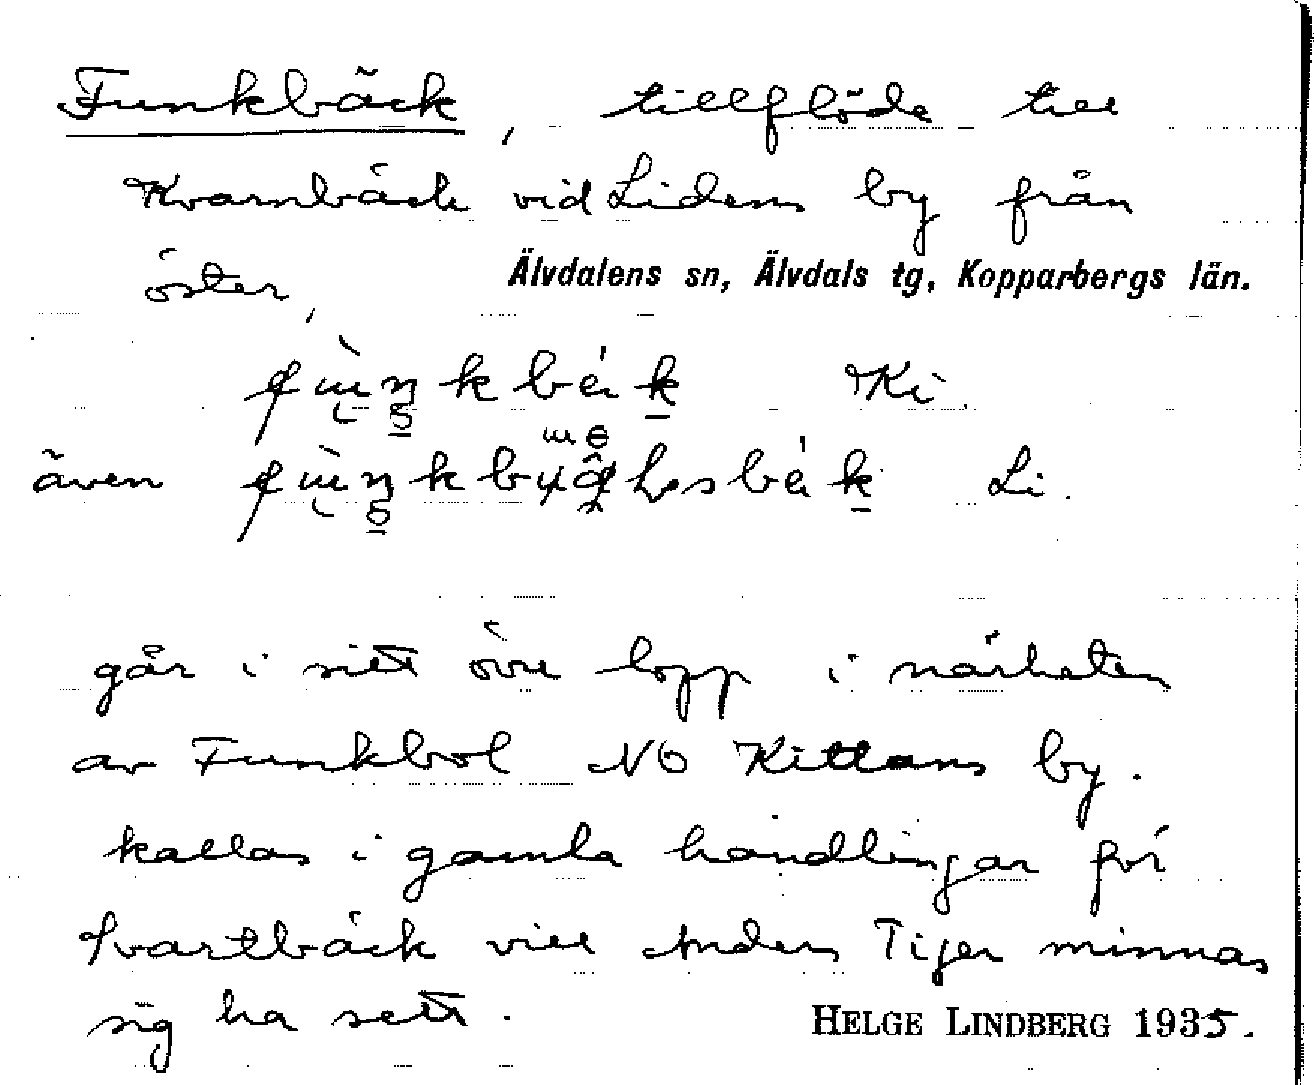 Funkbäck, tillflöde till
Kvarnbäck vid Lidens by från
öster,
Älvdalens sn, Älvdals tg, Kopparbergs län.
Ki.
även
Li.
går i sitt övre lopp i närheten
av Funkbol NO Kittans by.
kallas i gamla handlingar för
Svartbäck vill Anders Tiger minnas
sig ha sett.
HELGE LINDBERG 1935.